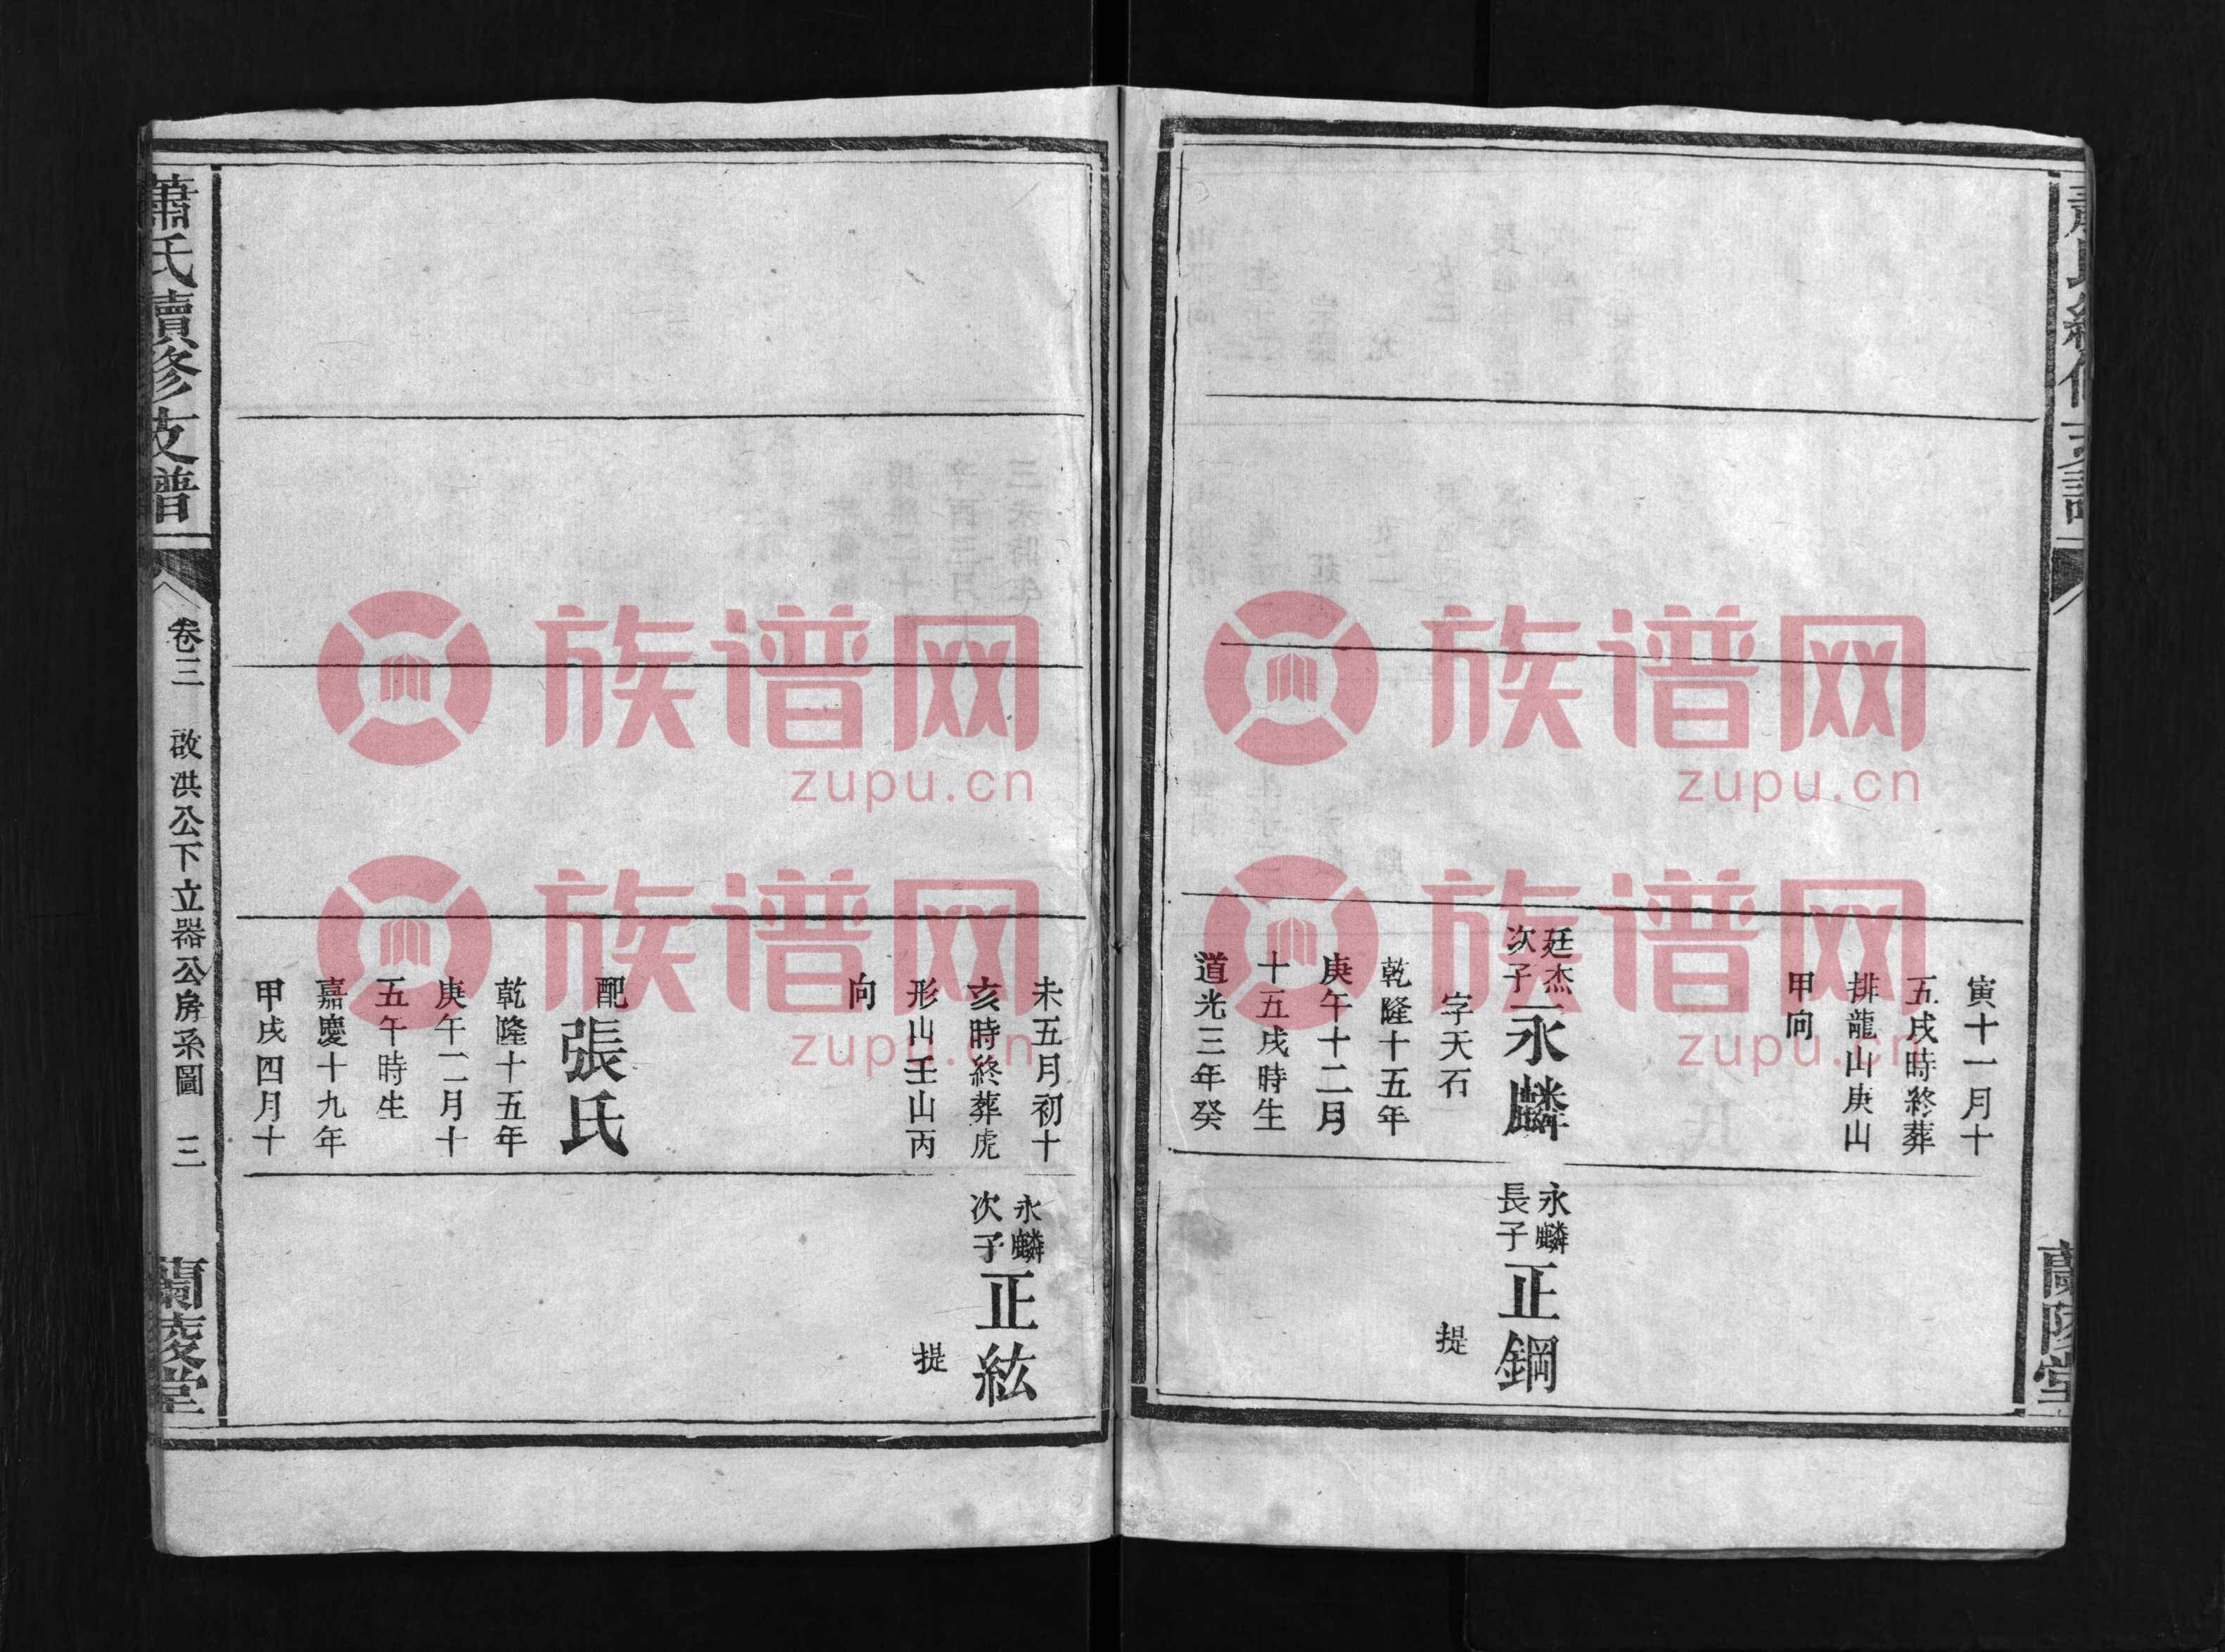 寅十一月十
五戌時終葬
排龍山庚山
甲向
廷杰
次子
永麟
字天石
乾隆十五年
庚午十二月
十五戌時生
道光三年癸
永麟
長子
正鋼
提
蘭陵堂
未五月初十
亥時終葬虎
形山壬山丙
向
配張氏
乾隆十五年
庚午二月十
五午時生
嘉慶十九年
甲戌四月十
永麟
次子
正紘
提
蕭氏續修支譜
卷三
啟洪公下立器公房系圖
三
蘭陵堂
族谱网
zupu.cn
族谱网
zupu.cn
族谱网
zupu.cn
族谱网
zupu.cn